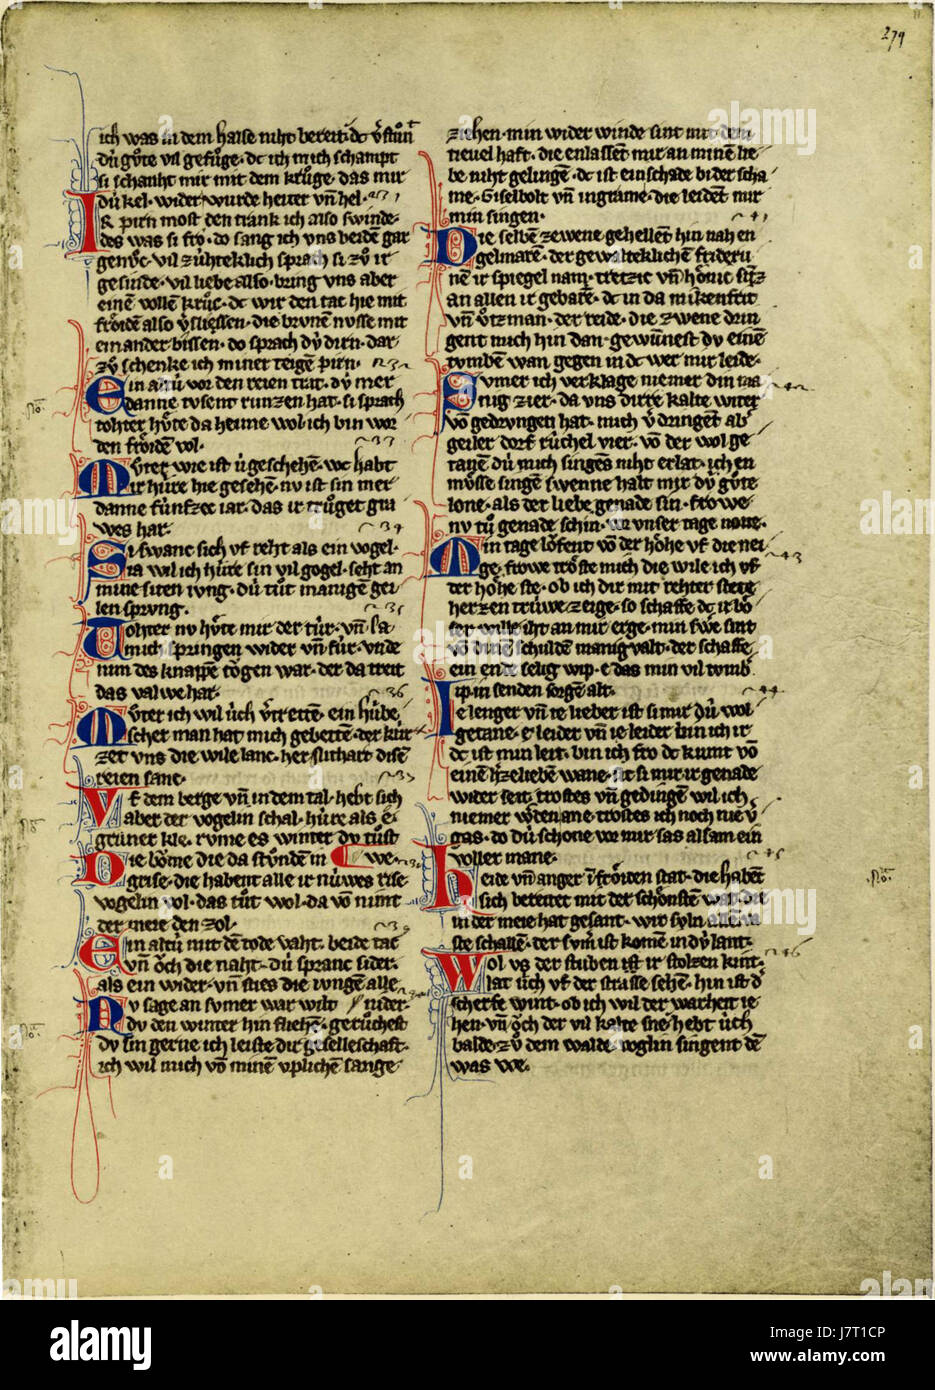 279
ich was in dem halse niht bereit· dc v̾stůnt
dú gůte vil gefůge· dc ich mich schampt
si schanht mir mit dem krůge· das mir
dúkel· wider wurde heiter vn̄ hel·
IR pirn most den trank ich also swinde-
des was si fro· do sang ich vns beiden gar
genv̊c· vil zúhteklich sprach si zv̊ ir
gesinde· vil liebe also· bring vns aber
einē vollē krůc· dc wir den tac hie mit
frőiden also v̾sliessen· die brvnē nvsse mit
ein ander bissen· do sprach dv́ dirn· dar
zv̊ schenke ich miner teigē pirn·
Ein altú vor den reien trat· dv́ mer
danne tvsent rvnzen hat· si sprach
tohter hv̊te da heime wol· ich bin wor
den frőidē vol·
Mv̊ter wie ist v́ geschehē· wc habt
ir húre hie gesehē· nv ist sin mer
danne fúnfzec iar· das ir trůget gra
wes har·
Si swanc sich vf reht als ein vogel·
sia wil ich húre sin vil gogel· seht an
mine siten ivng· dú tůt manigē gei
len sprvng·
Tohter nv hv̊te mir der túr· vn̄ la
mich springen wider vn̄ fúr· vnde
nim des knappē tőgen war· der da treit
das valwe har·
Mv̊ter ich wil v́ch v̾trettē· ein húbe
scher man hat mich gebettē· der kúr
zet vns die wile lanc· her sitchart disē
reien sanc·
Vf dem berge vn̄ in dem tal· hebt sich
aber der vogelin schal· húre als e·
grůner kle· rvme es winter dv tůst
Die bőme die da stůnden in we·
grise· die habent alle ir núwes rise
vogelin vol· das tůt wol· da vō nimt
der meie den zol·
Ein altú mit dē tode vaht· beide tac
vn̄ őch die naht· dú spranc sider·
als ein wider· vn̄ sties die ivngē alle
Nv sage an svmer war wilt nider·
dv den winter hin fliehē· gerůchest
dv sin gerne ich leiste dir geselleschaft·
ich wil mich vō minē vplichem sange
ziehen· min wider winde sint mit dem
tievel haft· die enlassēt mir an minē lie
be niht gelingen· dc ist ein schade bi der scha
me· Giselbolt vn̄ ingrame· die leident mir
min singen·
Die selben zewene gehellent hin nah en
gelmare· der gewalteklichē frideru
nē ir spiegel nam· tretzic vn̄ hőnic sīz
an allen ir gebarē· dc in da nikenfrit
vn̄ v̊tzman· der reide· die zwene drin
gent mich hin dan· gewúnnest dv einē
tvmbē wan gegen in dc wer mir leide·
Svmer ich verklage niemer din ma
nig zier· da vns dirre kalte winter
vō gedrvngen hat· mich v̾dringent ab̾
geiler dorf růchel vier· vō der wol ge
tanē dú mich singēs niht erlat· ich en
mv̊sse singē swenne habt mir dv́ gůte
lone· als der liebe genade sin· frowe
nv tů genade schin· vor vnser tage none·
Min tage lőfent vō der hőhe vf die nei
ge· frowe trőste mich die wile ich vf
der hőhe ste· ob ich dir mit rehter stete
herzen trúwe zeige· so schaffe dc ir bő
ser wille iht an mir erge· min swe sint
vō dinē schuldē manigvalt· der schaffe
ein ende selig wip· e das min vil tvmb̾
lip in senden sorgē alt·
Ie lenger vn̄ ie lieber ist si mir dú wol
getane· e leider vn̄ ie leider bin ich ir
dc ist min leit· bin ich fro dc kvmt vō
einē h̾zeliebē wane· nv ist si mir ir genade
wider seit· trostes vn̄ gedingen wil ich
niemer w̾den ane· trostes ich noch nie v̾
gas· do dú schone vor mir sas alsam ein
voller mane·
Heide vn̄ anger in frőiden stat· die habēt
sich bereitet mit der schőnstē wat· die
in der meie hat gesant· wir svln allēsa
ste schallē· der svm̄ ist komē in dv́ lant·
Wol vs der stuben ist ir stolzen kint·
lat v́ch vf der strasse sehē· hin ist d̾
scherfe wint· ob ich wil der warheit ie
hen· vn̄ őch der vil kalte sne· hebt v́ch
balde· zv̊ dem walde· voglin singent dē
was we·
alamy
Image ID: J7T1CP
www.alamy.com